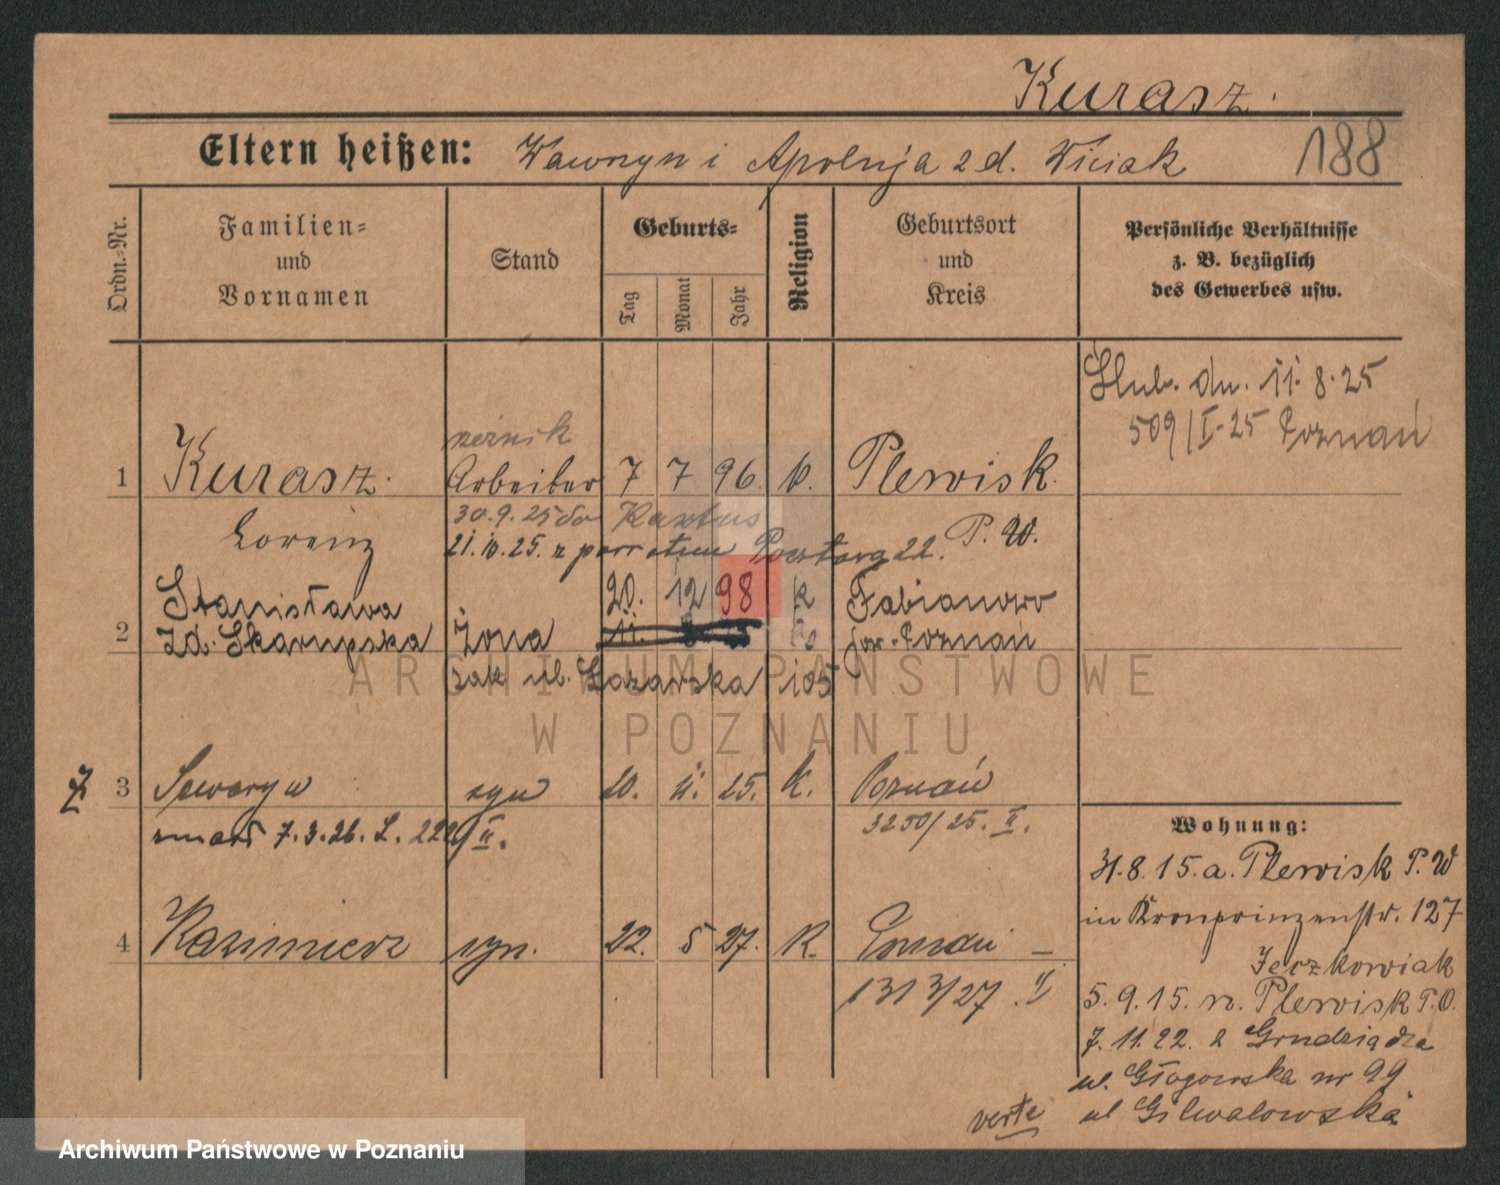 Kurasz.
188
Eltern heißen: Wawrzyn i Apolnja z d. Wiciak
Ordn.-Nr.
Familien- und Vornamen
Stand
Geburts-
Tag
Monat
Jahr
Religion
Geburtsort und Kreis
Persönliche Verhältnisse
z. B. bezüglich
des Gewerbes usw.
Ślub. dn. 11. 8. 25
509/I-25 Poznań
1 Kurasz. Arbeiter 7 7 96. k. Plewisk
Lorenz
30.9.25 do
21.10.25. z powrotem
22. P. W.
Stanisława 20. 12 98 k Fabianowo
2 Zd. Skarupska Żona 11. 8 25 po. Poznań
zak ul. Łazarska 105
3 Seweryn syn 20. 11. 25. k. Poznań
zmarł 7.3.26. L. II.
3250/25. II.
4 Kazimierz syn. 22. 5 27. K. Poznań –
1313/27. II
Wohnung:
31.8.15. a. Plewisk P. W
in Kronprinzenstr. 127
Jeczkowiak
5.9.15. n. Plewisk P.O.
7.11.22. z Grudziądza
ul. Głogowska nr 99
ul
verte
ARCHIWUM PAŃSTWOWE
W POZNANIU
Archiwum Państwowe w Poznaniu